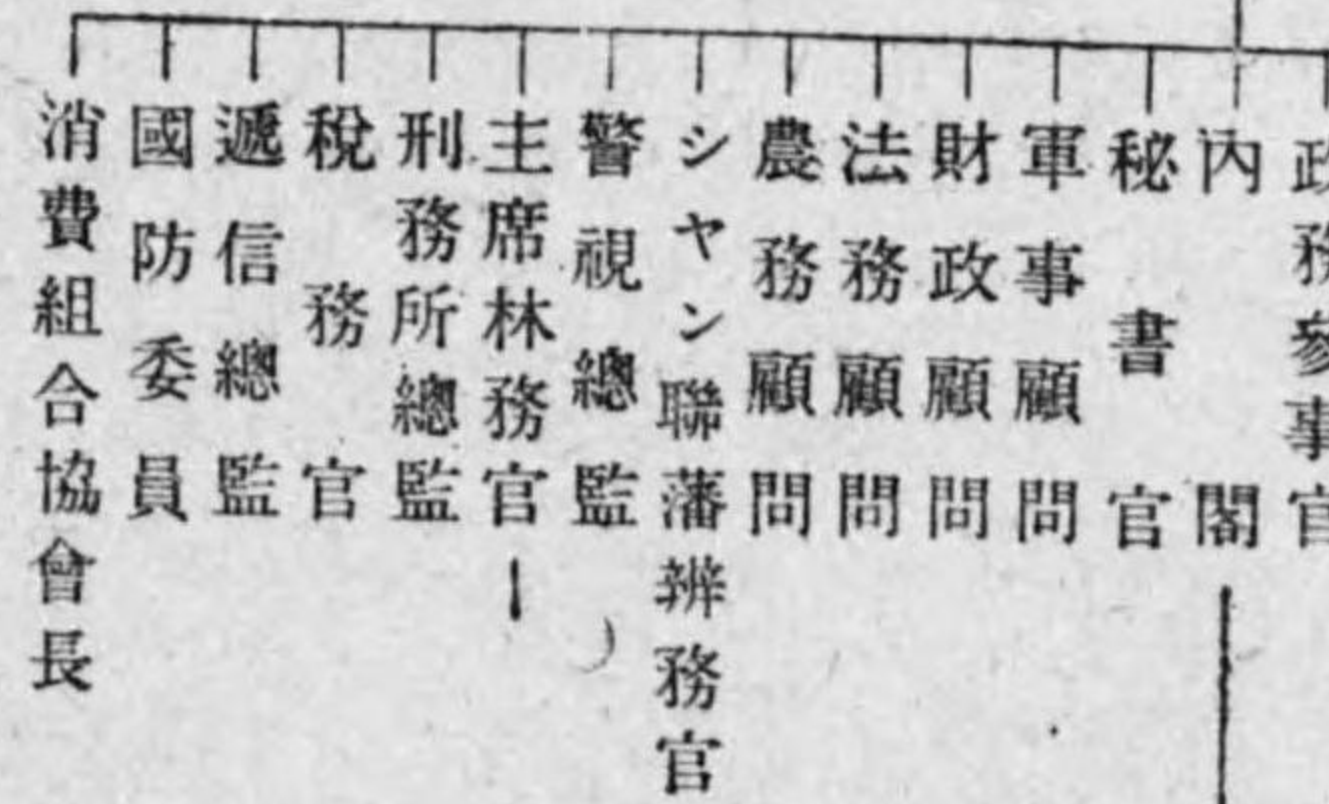 政務參事官
內閣
秘書官
軍事顧問
財政顧問
法務顧問
農務顧問
シヤン聯藩辨務官
警視總監
主席林務官
刑務所總監
稅務官
遞信總監
國防委員
消費組合協會長